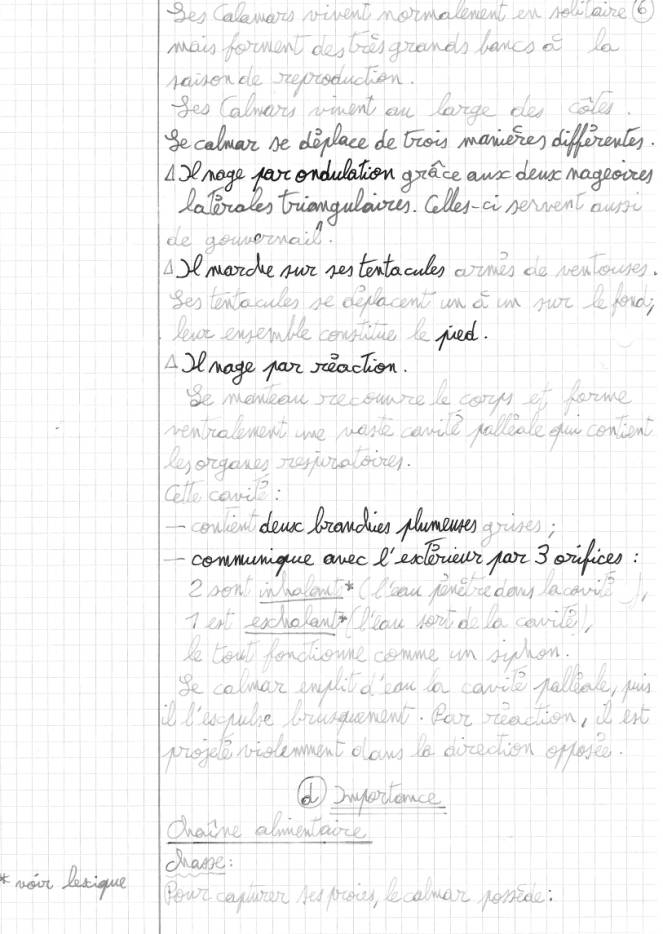 Les Calamars vivent normalement en solitaire 6
mais forment des très grands bancs à la
saison de reproduction.
Les Calmars vivent au large des côtes.
Le calmar se déplace de trois manières différentes.
Δ Il nage par ondulation grâce aux deux nageoires
latérales triangulaires. Celles-ci servent aussi
de gouvernail.
Δ Il marche sur ses tentacules armés de ventouses.
Ses tentacules se déplacent un à un sur le fond;
leur ensemble constitue le pied.
Δ Il nage par réaction.
Le manteau recouvre le corps et forme
ventralement une vaste cavité palléale qui contient
les organes respiratoires.
Cette cavité :
— contient deux branchies plumeuses grises ;
— communique avec l'extérieur par 3 orifices :
2 sont inhalant* (l'eau pénètre dans la cavité),
1 est exhalant* (l'eau sort de la cavité),
le tout fonctionne comme un siphon.
Le calmar emplit d'eau la cavité palléale, puis
il l'expulse brusquement. Par réaction, il est
projeté violemment dans la direction opposée.
d Importance
Chaîne alimentaire
chasse :
* voir lexique
Pour capturer ses proies, le calmar possède :